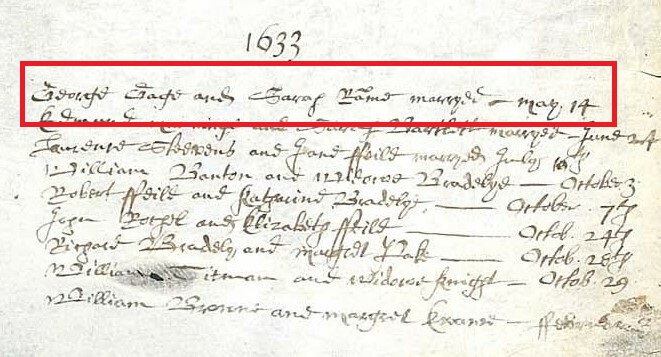 1633
George Gage and Sarah Rame marryed - may. 14
and Sarah Bartlett marryed - June
Laurence Steevens and Jane ffeild marryed July
William Banton and widowe Bradelye - October 3
Robert ffeild and Katharine Bradelye, - October. 7th
John and Elizabeth ffeild - Octob. 24th
Richard Bradely and margret - Octob. 28th
William Titman and widowe Knight - Octob. 29.
William Browne and margret -